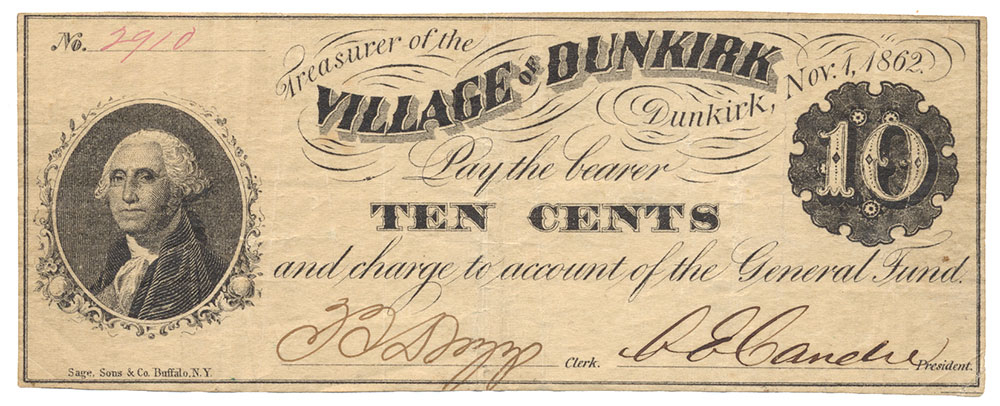 No. 2910
Treasurer of the
VILLAGE OF DUNKIRK
Dunkirk, Nov. 1, 1862.
10
Pay the bearer
TEN CENTS
and charge to account of the General Fund.
Clerk.
President.
Sage, Sons & Co. Buffalo, N.Y.